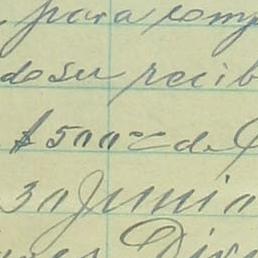 para comp
do su recib
$500 de
30 Junio